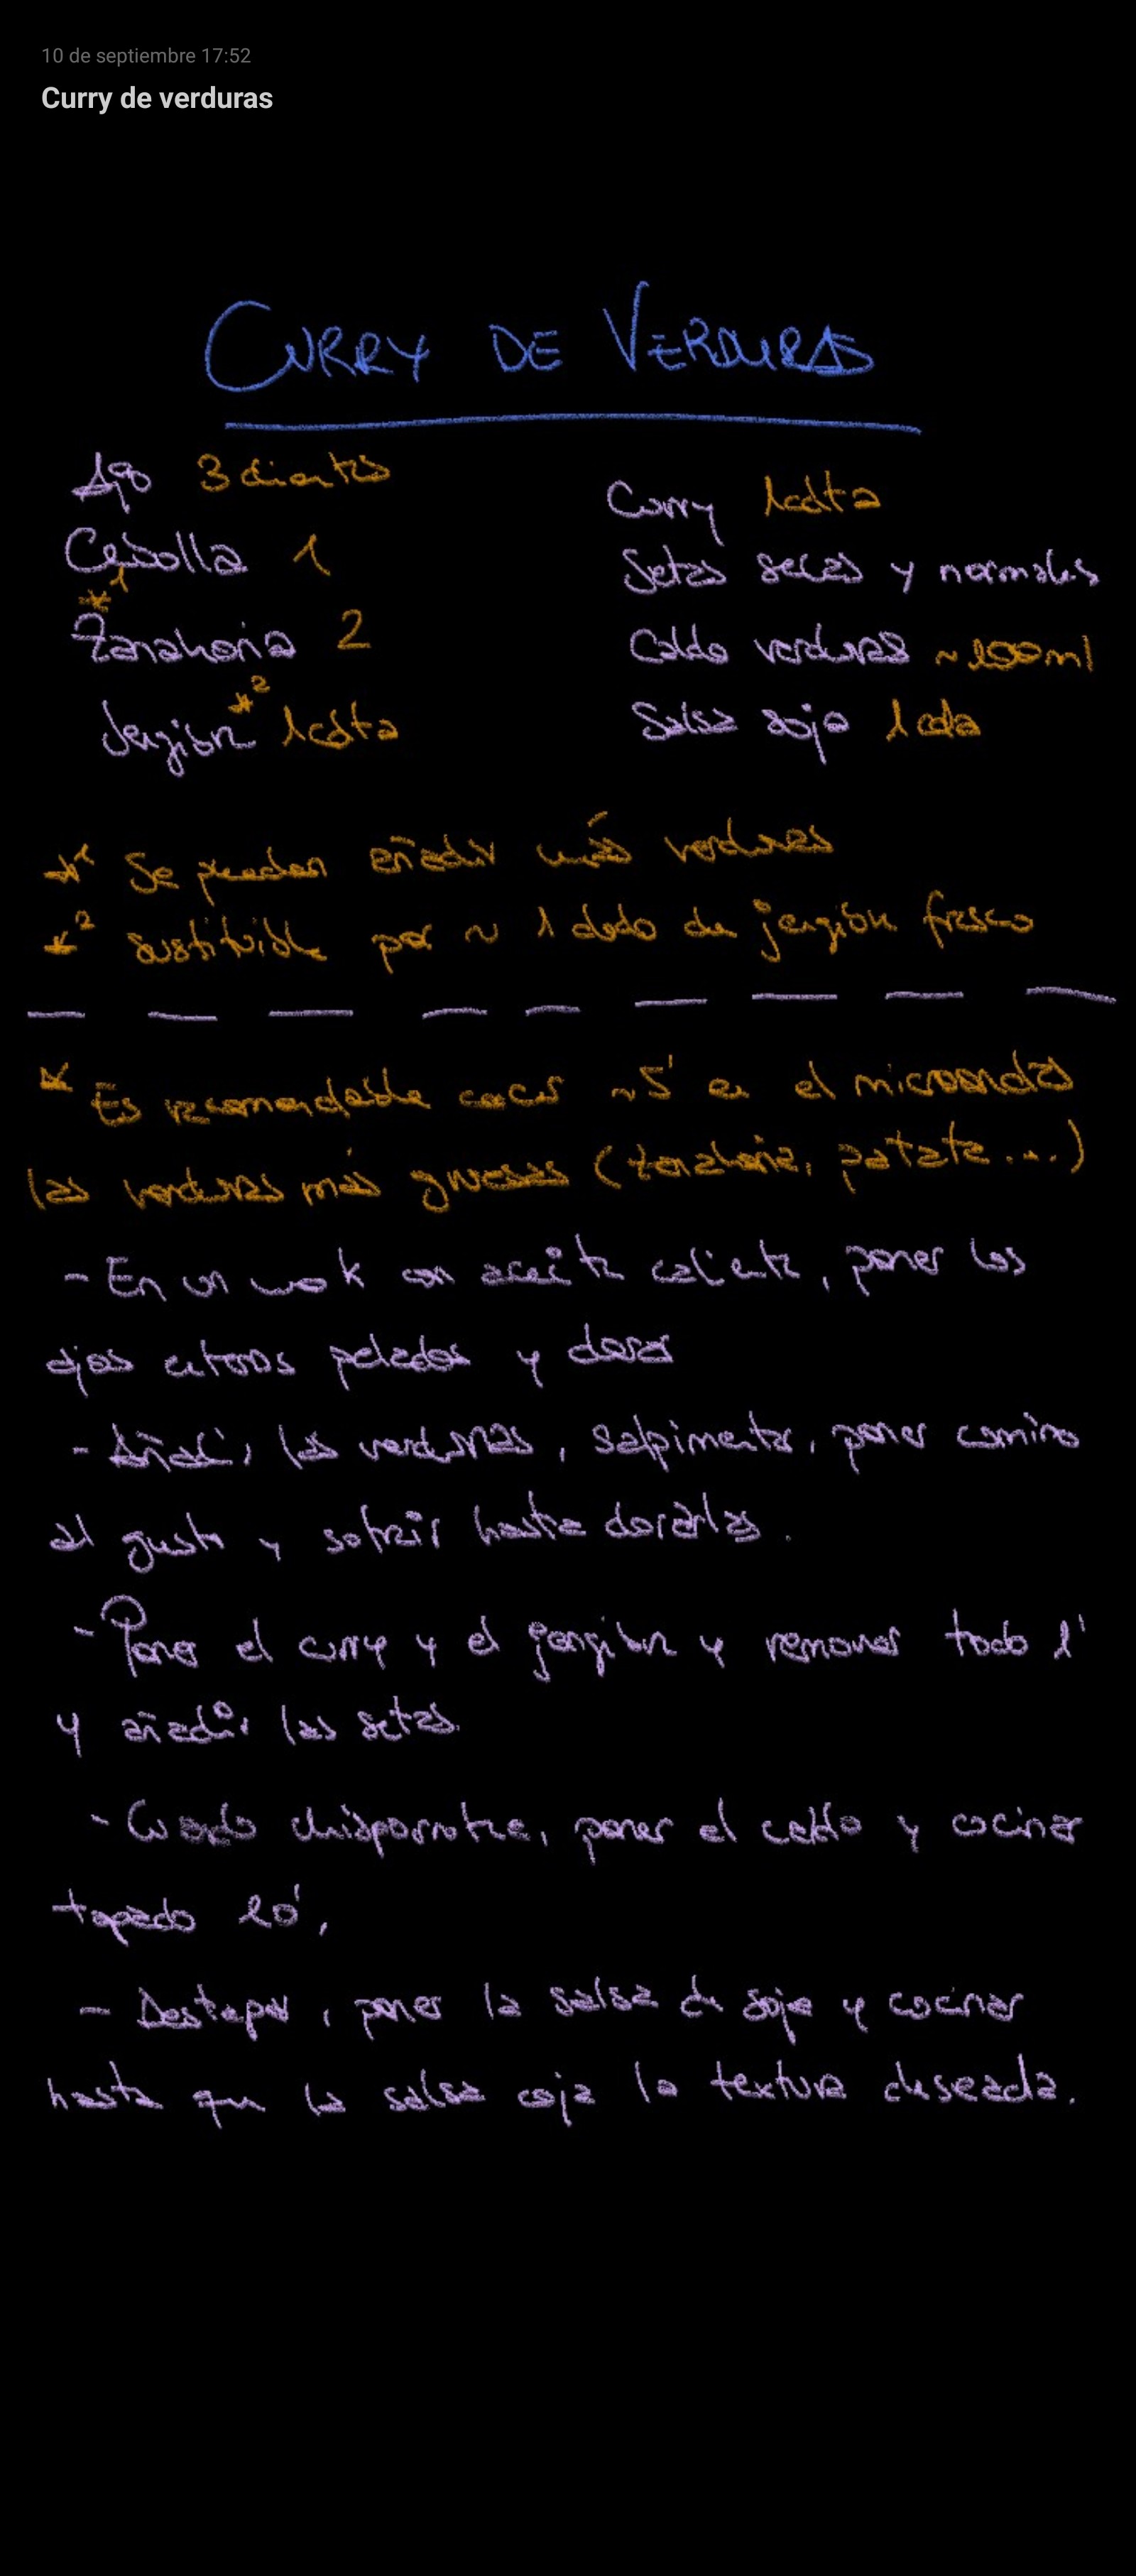 10 de septiembre 17:52
Curry de verduras
CURRY DE VERDURAS
Ajo 3 dientes
Cebolla 1
*1
Zanahoria 2
Jengibre *2 1 cdta
Curry 1 cdta
Setas secas y normales
Caldo verduras ~ 150ml
Salsa soja 1 cda
*1 Se pueden añadir más verduras
*2 sustituible por ~ 1 dedo de jengibre fresco
* Es recomendable cocer ~5' en el microondas
las verduras más gruesas (zanahoria, patata...)
- En un wok con aceite caliente, poner los
ajos enteros pelados y dorar
- Añadir las verduras, salpimentar, poner comino
al gusto y sofreir hasta dorarlas.
- Poner el curry y el jengibre y remover todo 1'
y añadir las setas.
- Cuando chisporrotee, poner el caldo y cocinar
tapado 20',
- Destapar, poner la salsa de soja y cocinar
hasta que la salsa coja la textura deseada.